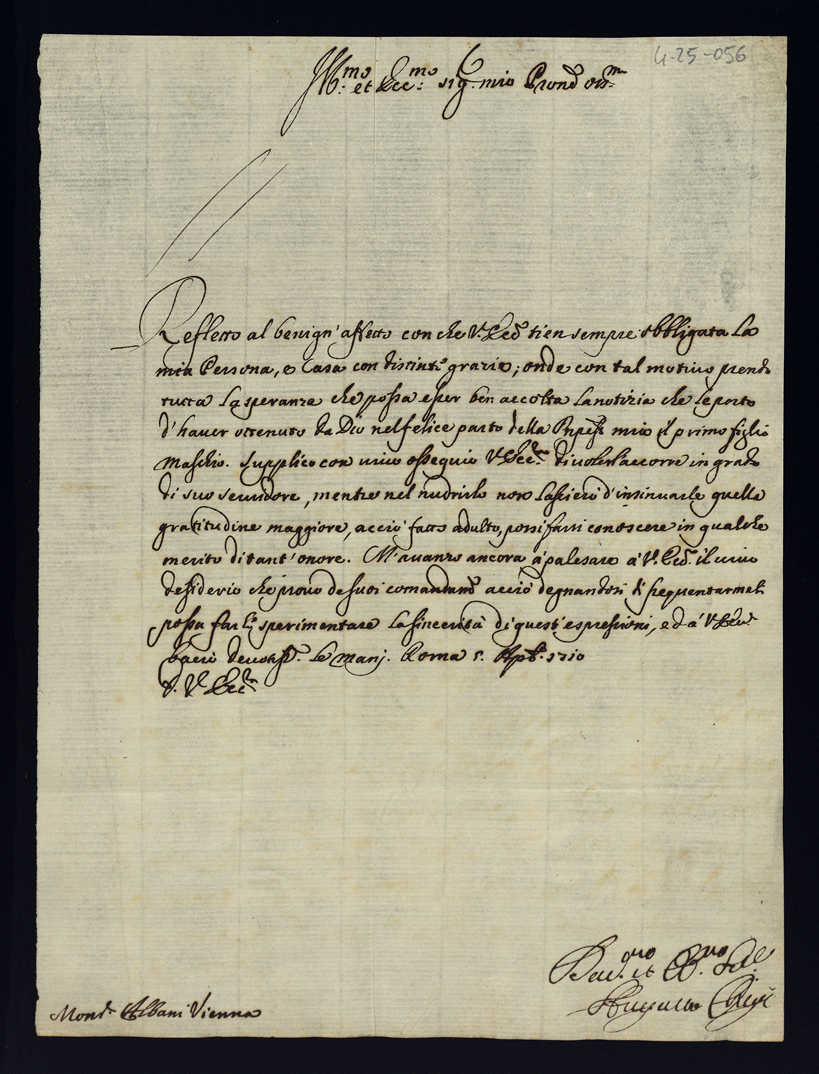 4-25-056
Ill.mo et Ecc.mo sig. mio Pron oss.mo
Reflecto al benign' affetto con che V. Ecc. tien sempre obbligata la
mia Persona, e Casa con distinte grazie; onde con tal motivo prendo
tutta la speranza che possa esser ben accolta la notizia che le porto
d'haver ottenuto da Dio nel felice parto della Pnpessa mia il primo figlio
Maschio. Supplico con vivo ossequio V. Ecc.za di volerl'accorre in grado
di suo servidore, mentre nel nudrirlo non lascierò d'insinuarle quella
gratitudine maggiore, acciò fatto adulto, possi farsi conoscere in qualche
merito di tant'onore. M'avanzo ancora à palesare à V. Ecc. il vivo
desiderio che provo de suoi comandam.ti acciò degnandosi di frequentarmeli
possa farle sperimentare la sincerità di quest'espressioni, ed à V. Ecc.
bacio devotis. le mani. Roma 5. Aple. 1710
D. V. Ecc.za
Dev.mo et Obb.mo
Augusto Chigi
Mons. Albani Vienna